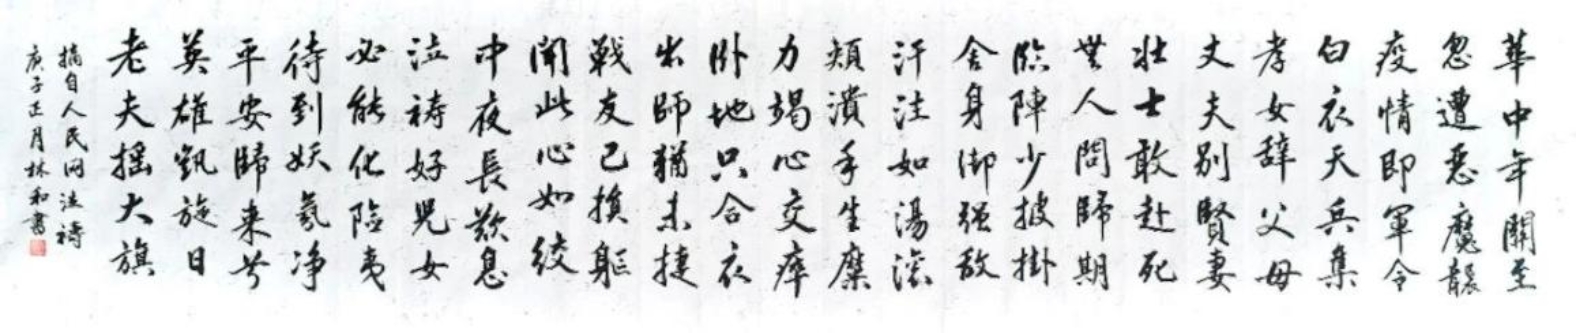 華中年關至
忽遭惡魔襲
疫情即軍令
白衣天兵集
孝女辭父母
丈夫别賢妻
壮士敢赴死
無人問歸期
臨陣少披掛
舍身御强敌
汗注如湯滚
頰潰手生糜
力竭心交瘁
卧地只合衣
出師猶未捷
戰友已損軀
聞此心如絞
中夜長歎息
泣祷好兒女
必能化险夷
待到妖氛净
平安歸来兮
英雄凱旋日
老夫摇大旗
摘自人民网泣祷
庚子正月林和書